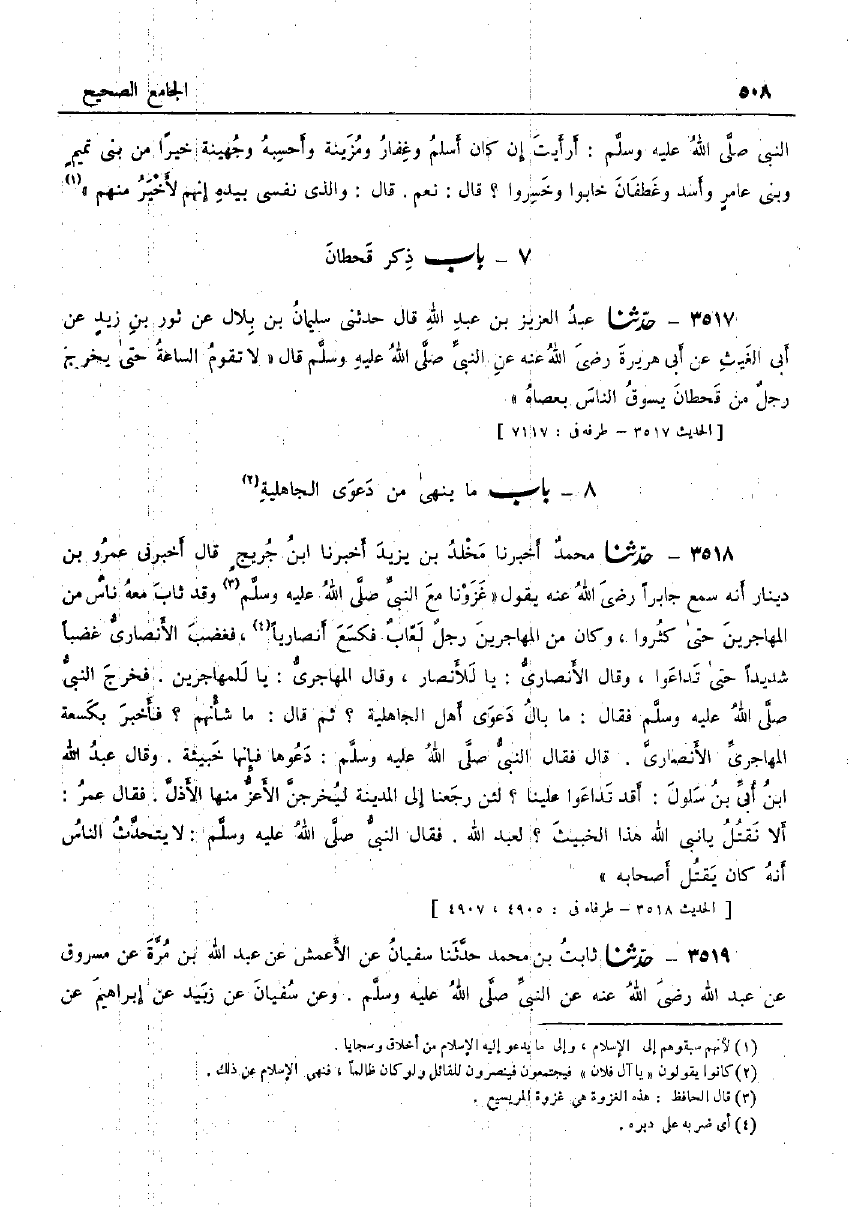 ٥٠٨ الجامع الصحيح
النبى صلَّى اللهُ عليه وسلَّم : أرأيتَ إن كان أسلمُ وغِفارُ ومُزَينة وأحسِبهُ وجُهينة خيرًا من بنى تميمٍ
وبنى عامرٍ وأسد وغَطفَانَ خابوا وخَسِروا ؟ قال : نعم . قال : والذى نفسى بيدهِ إنهم لأَخْيَرُ منهم » (١)
٧ – باب ذِكر قَحطانَ
٣٥١٧ – حدّثنا عبدُ العزيز بن عبدِ اللهِ قال حدثنى سليمانُ بن بِلال عن ثور بنِ زيدٍ عن
أبى الغَيثِ عن أبى هريرةَ رضىَ اللهُ عنه عنِ النبىِّ صلَّى اللهُ عليهِ وسلَّم قال « لا تقومُ الساعةُ حتىٰ يخرجَ
رجلٌ من قَحطانَ يسوقُ الناسَ بعصاهُ »
[ الحديث ٣٥١٧ – طرفه فى : ٧١١٧ ]
٨ – باب ما ينهىٰ من دَعوَى الجاهليةِ (٢)
٣٥١٨ – حدّثنا محمدٌ أخبرنا مَخْلدُ بن يزيدَ أخبرنا ابنُ جُريجٍ قال أخبرنى عمرُو بن
دينار أنه سمع جابراً رضىَ اللهُ عنه يقول « غَزَوْنا معَ النبىِّ صلَّى اللهُ عليه وسلَّم (٣) وقد ثابَ معهُ ناسٌ من
المهاجرينَ حتىٰ كثُروا ، وكان من المهاجرينَ رجلٌ لَعّابٌ فكسَعَ أنصارياً (٤) ، فغضبَ الأنصارىُّ غضباً
شديداً حتىٰ تَداعَوا ، وقال الأنصارىُّ : يا لَلأنصار ، وقال المهاجرىُّ : يا لَلمهاجرين . فخرجَ النبىُّ
صلَّى اللهُ عليه وسلَّم فقال : ما بالُ دَعوَى أهل الجاهلية ؟ ثم قال : ما شأنُهم ؟ فأخبرَ بكَسعة
المهاجرىِّ الأنصارىَّ . قال فقال النبىُّ صلَّى اللهُ عليه وسلَّم : دَعُوها فإنها خَبيثة . وقال عبدُ الله
ابنُ أُبىّ بنُ سَلولَ : أقد تَداعَوا علينا ؟ لئن رجَعنا إلى المدينة ليُخرجنَّ الأعزُّ منها الأذلَّ . فقال عمرُ :
ألا نَقتُلُ يانبى الله هذا الخبيثَ ؟ لعبد الله . فقال النبىُّ صلَّى اللهُ عليه وسلَّم : لا يتحدَّثُ الناسُ
أنهُ كان يَقتُل أصحابه »
[ الحديث ٣٥١٨ – طرفاه فى : ٤٩٠٥ ، ٤٩٠٧ ]
٣٥١٩ – حدّثنا ثابتُ بن محمد حدَّثَنا سفيانُ عن الأعمش عن عبد الله بن مُرَّةَ عن مسروق
عن عبد الله رضىَ اللهُ عنه عن النبىِّ صلَّى اللهُ عليه وسلَّم . وعن سُفيانَ عن زبَيد عن إبراهيمَ عن
(١) لأنهم سبقوهم إلى الإسلام ، وإلى ما يدعو إليه الإسلام من أخلاق وسجايا .
(٢) كانوا يقولون « يا آل فلان » فيجتمعون فينصرون للقائل ولو كان ظالماً ، فنهي الإسلام عن ذلك .
(٣) قال الحافظ : هذه الغزوة هي غزوة المريسيع .
(٤) أي ضربه على دبره .